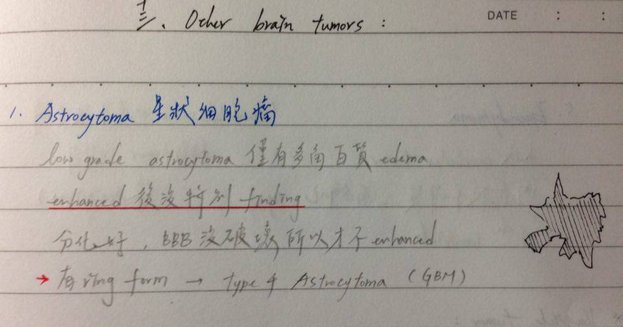 十三、Other brain tumors :
DATE : :
1. Astrocytoma 星狀細胞瘤
low grade astrocytoma 僅有多角白質 edema
enhanced 後沒特別 finding
分化好，BBB 沒破壞所以才不 enhanced
→ 有 ring form → type 4 Astrocytoma (GBM)